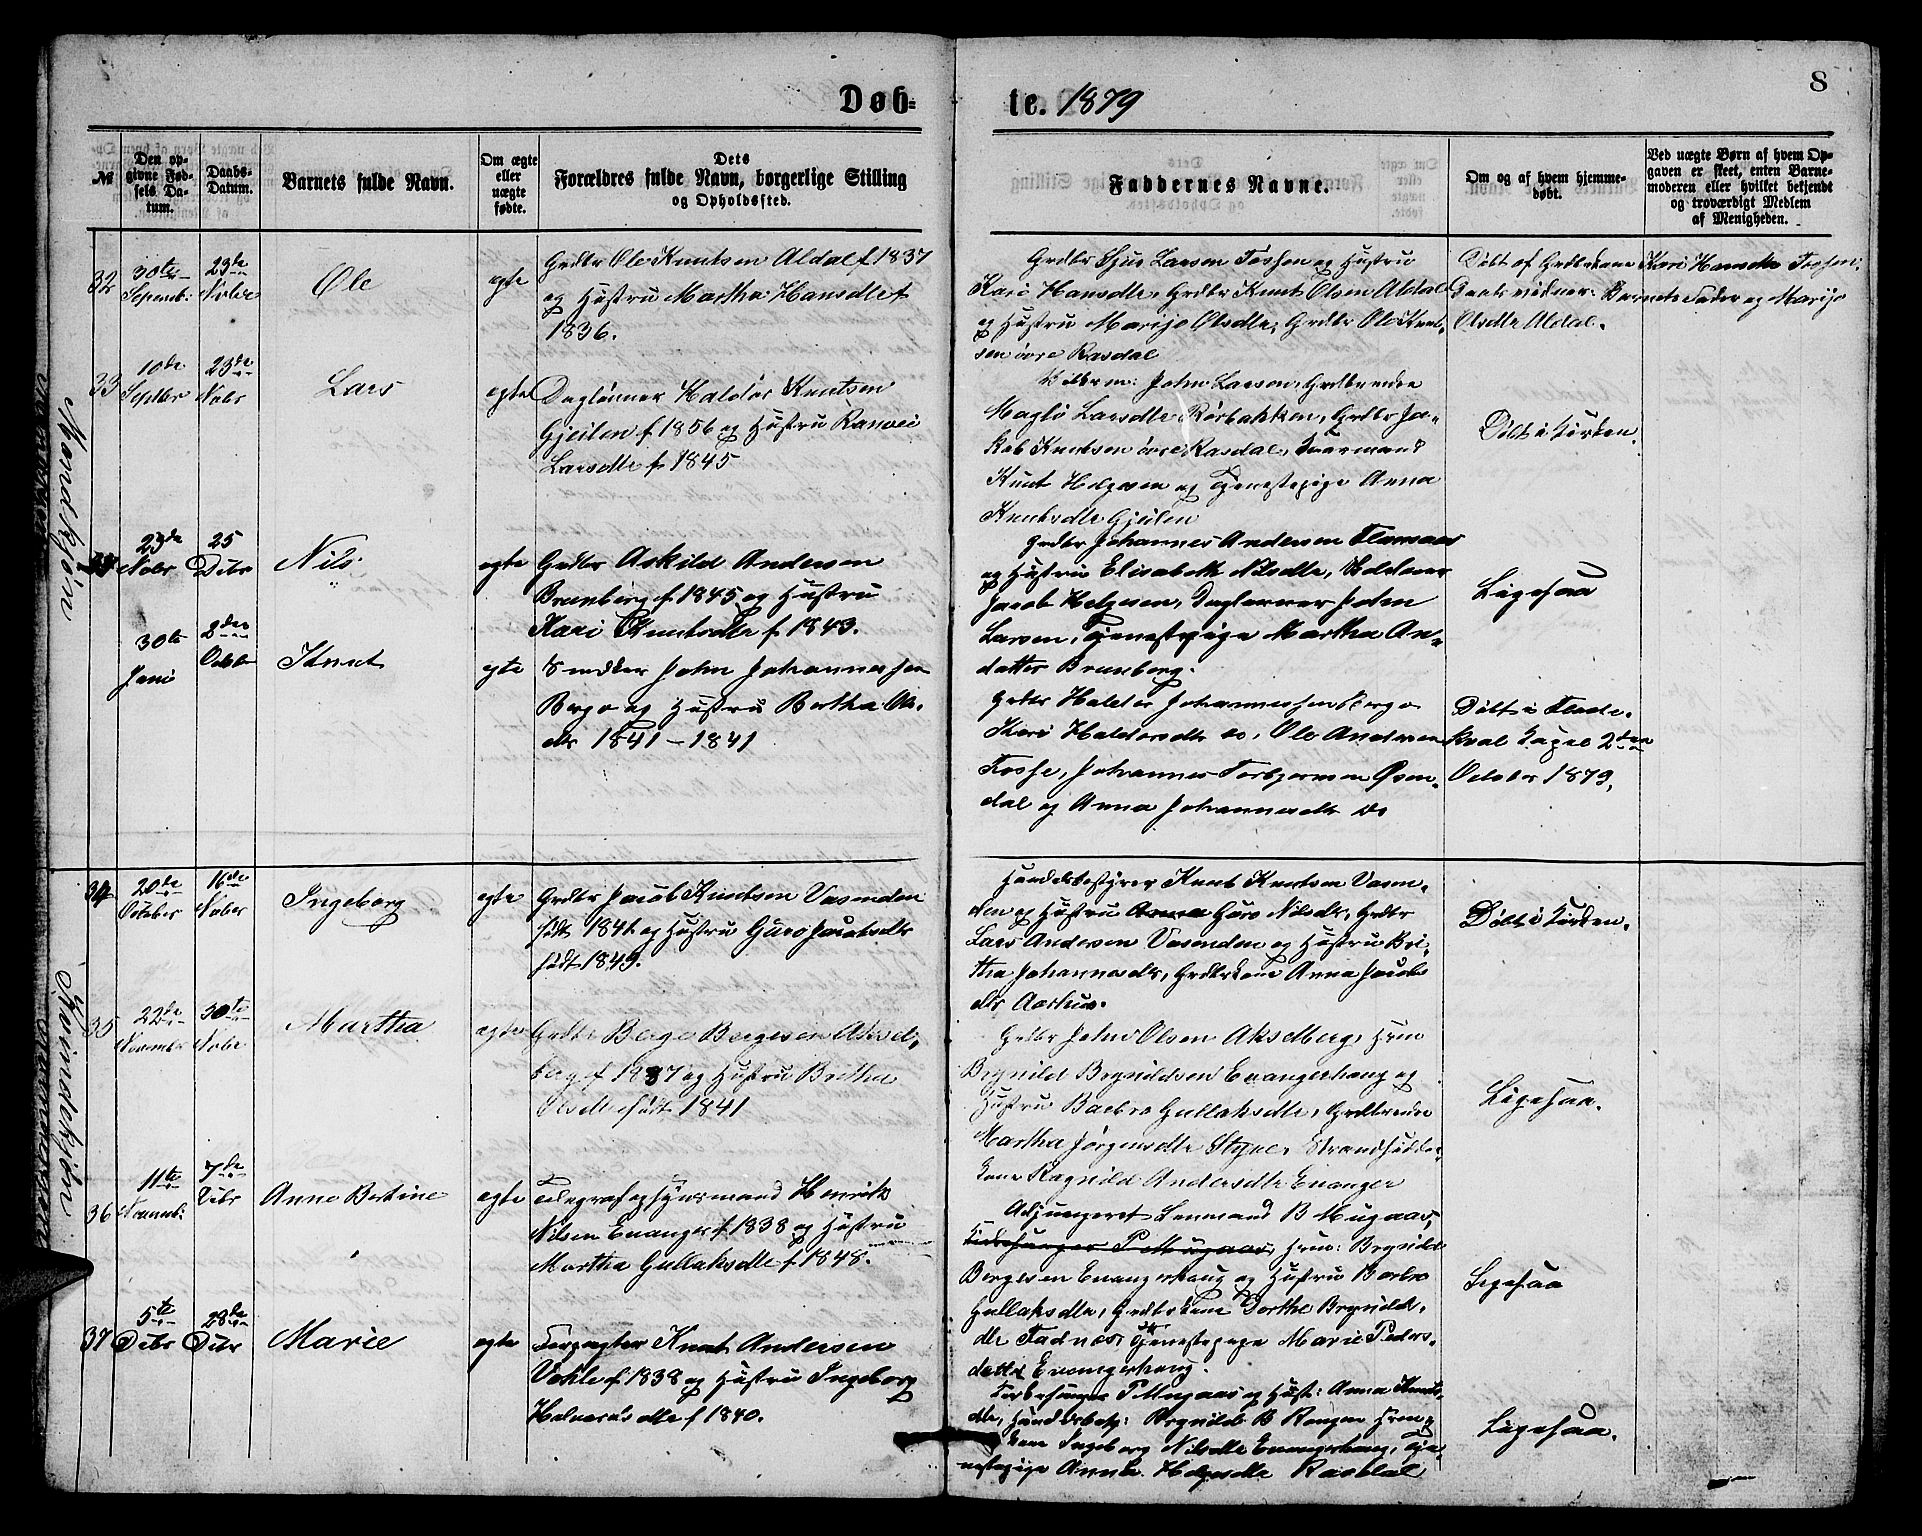 Døb-
te. 1879
8
№
Den op-
givne Fød-
sels Da-
tum.
Daabs-
Datum.
Barnets fulde Navn.
Om ægte
eller
uægte
fødte.
Dets
Forældres fulde Navn, borgerlige Stilling
og Opholdssted.
Faddernes Navne.
Om og af hvem hjemme-
døbt.
Ved uægte Børn af hvem Op-
gaven er skeet, enten Barne-
moderen eller hvilket bekjendt
og troværdigt Medlem
af Menigheden.
Mandkjøn
32
30te
Septemb:
23de
Novbr
Ole
egte
Grdbr Ole Knutsen Aldal f 1837
og Hustru Martha Hansdtr f
1836.
Grdbr Sjur Larsen Fosse og Hustru
Kari Hansdtr, Grdbr Knut Olsen Aldal
og Hustru Marijo Olsdtr, Grdbr Ole Knut-
sen øvre Rasdal
Døbt af Grdbrkone Kari Hansdtr Fosse.
Daabsvidner: Barnets Fader og Marijo
Olsdtr Aldal.
33
10de
Septbr
23de
Novbr
Lars
egte
Daglønner Haldor Knutsen
Gjeilen f 1856 og Hustru Ranvei
Larsdtr f 1845
John Larsen, Grdbrenke
Magli Larsdtr Rørbakken, Grdbr Ja-
kob Knutsen øvre Rasdal,
Knut Helgesen og Tjenestepige Anna
Knutsdtr Gjeilen
Døbt i Kirken.
23de
Novbr
25
Debr
Nils
egte
Grdbr Askild Andersen
Brunborg f 1845 og Hustru
Kari Knutsdtr f 1843.
Grdbr Johannes Andersen
og Hustru Elisabeth Nilsdtr,
Jacob Helgesen, Dagløner John
Larsen, Tjenestepige Martha An-
datter Brunborg.
Ligesaa
30te
Juni
8de
Octbr
Knut
egte
Smeder John Johannessen
Bergo og Hustru Bertha Ols-
dtr 1841 - 1841
Grdbr Haldor Johannessen Bergo
Kari Haldorsdtr do, Ole Andersen
Fosse, Johannes Torbjornsen Øen-
dal og Anna Johannesdtr do
Døbt i Flade-
kval Kapel 2den
October 1879.
Kvindekjøn
34
20de
October
16de
Novbr
Ingeborg
egte
Grdbr Jacob Knutsen Vasenden
født 1841 og Hustru Guro Jacobsdtr
født 1849.
Handelsbestyrer Knut Knutsen Vasen-
den og Hustru Anna Guro Nilsdtr, Grdbr
Lars Andersen Vasenden og Hustru Bri-
tha Johannesdtr, Grdbrkone Anna Jacobs
dtr Aarhus.
Døbt i Kirken.
35
22de
Novembr
30te
Novbr
Martha
egte
Grdbr Berge Bergesen Aksel-
berg f 1837 og Hustru Britha
Olsdtr født 1841
Grdbr John Olsen Akselberg,
Brynild Brynildsen Evangerhaug og
Hustru Barbro Gullaksdtr, Grdbrenke
Martha Jørgensdtr Styve, Strandsidder-
kone Ragnild Andersdtr Evanger
Ligesaa.
36
11te
Novemb:
7de
Debr
Anne Bertine
egte
Telegrafopsynsmand Henrik
Nilsen Evanger f 1838 og Hustru
Martha Gullaksdtr f 1848.
Adjungeret Lensmand B Mugaas,
Kirkesanger P Mugaas, Brynild
Bergesen Evangerhaug og Hustru Barbro
Gullaksdtr, Grdbrkone Dorthe Brynilds-
dtr Fadnæs, Tjenestepige Marie Peders-
datter Evangerhaug.
Ligesaa
37
5te
Debr
28de
Debr
Marie
egte
Forpagter Knut Andersen
Vøhle f 1838 og Hustru Ingeborg
Halvorsdtr f 1840.
Kirkesanger P Mugaas og Hust: Anna Knuts-
dtr, Handelsbest: Brynild B Rongen
kone Ingeborg Nilsdtr Evangerhaug, Tje-
nestepige Anna Helgesdtr Rasdal
Ligesaa.